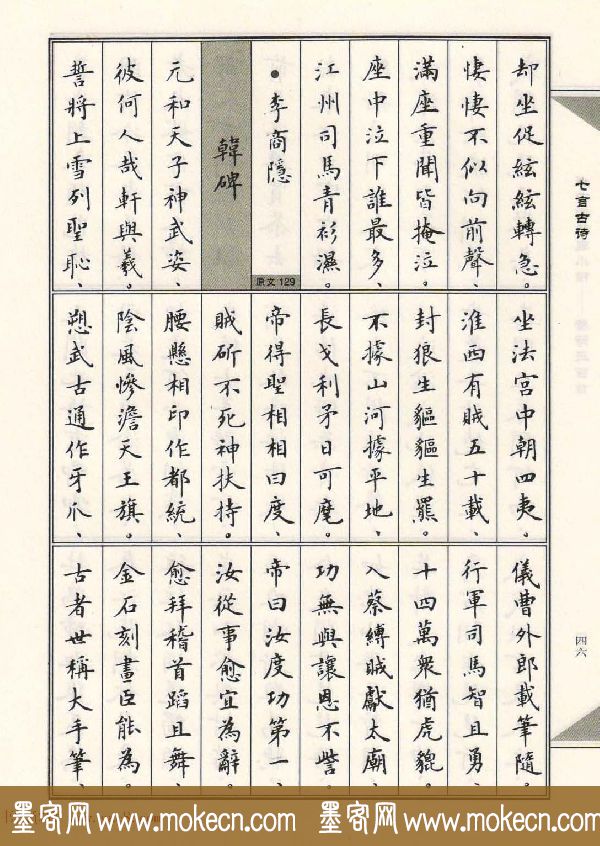 七言古诗
却坐促絃絃轉急。
悽悽不似向前聲、
滿座重聞皆掩泣。
座中泣下誰最多、
江州司馬青衫濕。
• 李商隱
原文 129
韓碑
元和天子神武姿、
彼何人哉軒與羲。
誓將上雪列聖恥、
坐法宮中朝四夷。
淮西有賊五十載、
封狼生貙貙生羆。
不據山河據平地、
長戈利矛日可麾。
帝得聖相相曰度、
賊斫不死神扶持。
腰懸相印作都統、
陰風慘澹天王旗。
愬武古通作牙爪、
儀曹外郎載筆隨。
行軍司馬智且勇、
十四萬衆猶虎貔。
入蔡縛賊獻太廟、
功無與讓恩不訾。
帝曰汝度功第一、
汝從事愈宜為辭。
愈拜稽首蹈且舞、
金石刻畫臣能為。
古者世稱大手筆、
四六
墨客网 www.mokecn.com 墨客网 www.mokecn.com